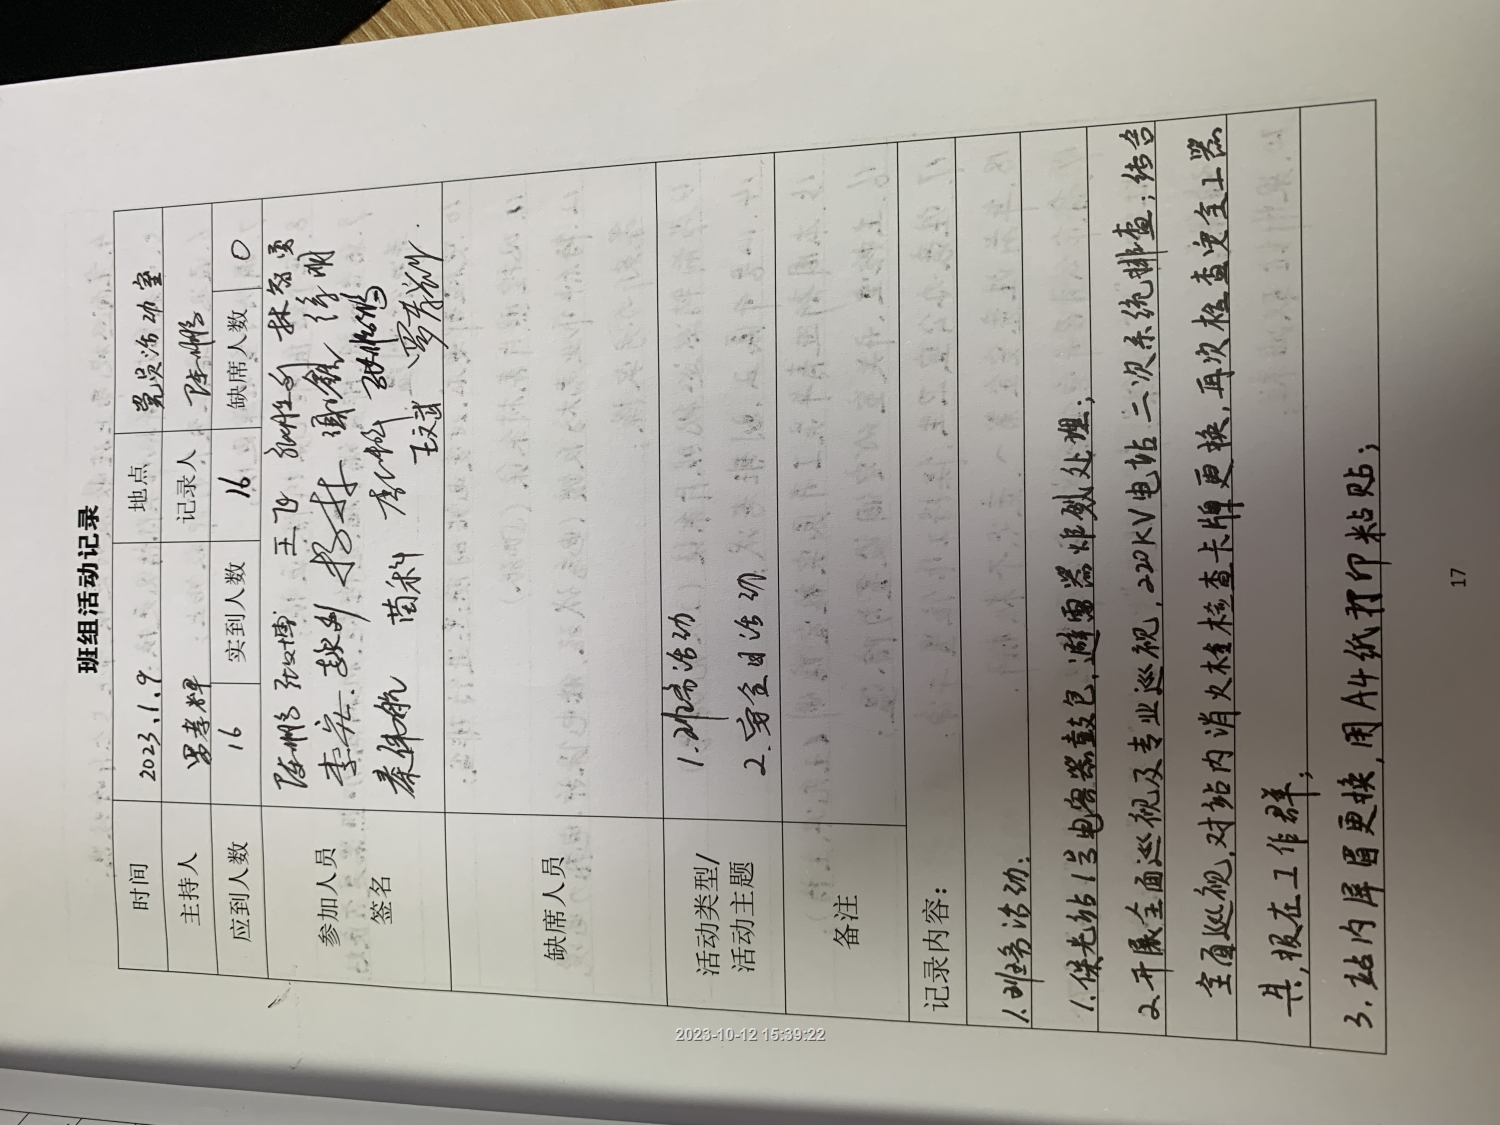 班组活动记录
时间 2023.1.9 地点 党员活动室
主持人 记录人 陈鹏
应到人数 16 实到人数 16 缺席人数 0
参加人员
签名
陈鹏 王飞
李宏 杨林
秦伟航 苗科
王文武
缺席人员
活动类型/
活动主题
1.班务活动
2.安全日活动
备注
记录内容：
1.班务活动：
1.候光站1号电容器鼓包，避雷器炸裂处理；
2.开展全面巡视及专业巡视，220KV电站二次系统排查；结合
全面巡视，对站内消火栓检查卡牌更换，再次检查安全工器
具，报在工作群；
3.站内屏眉更换，用A4纸打印粘贴；
17
2023-10-12 15:39:22